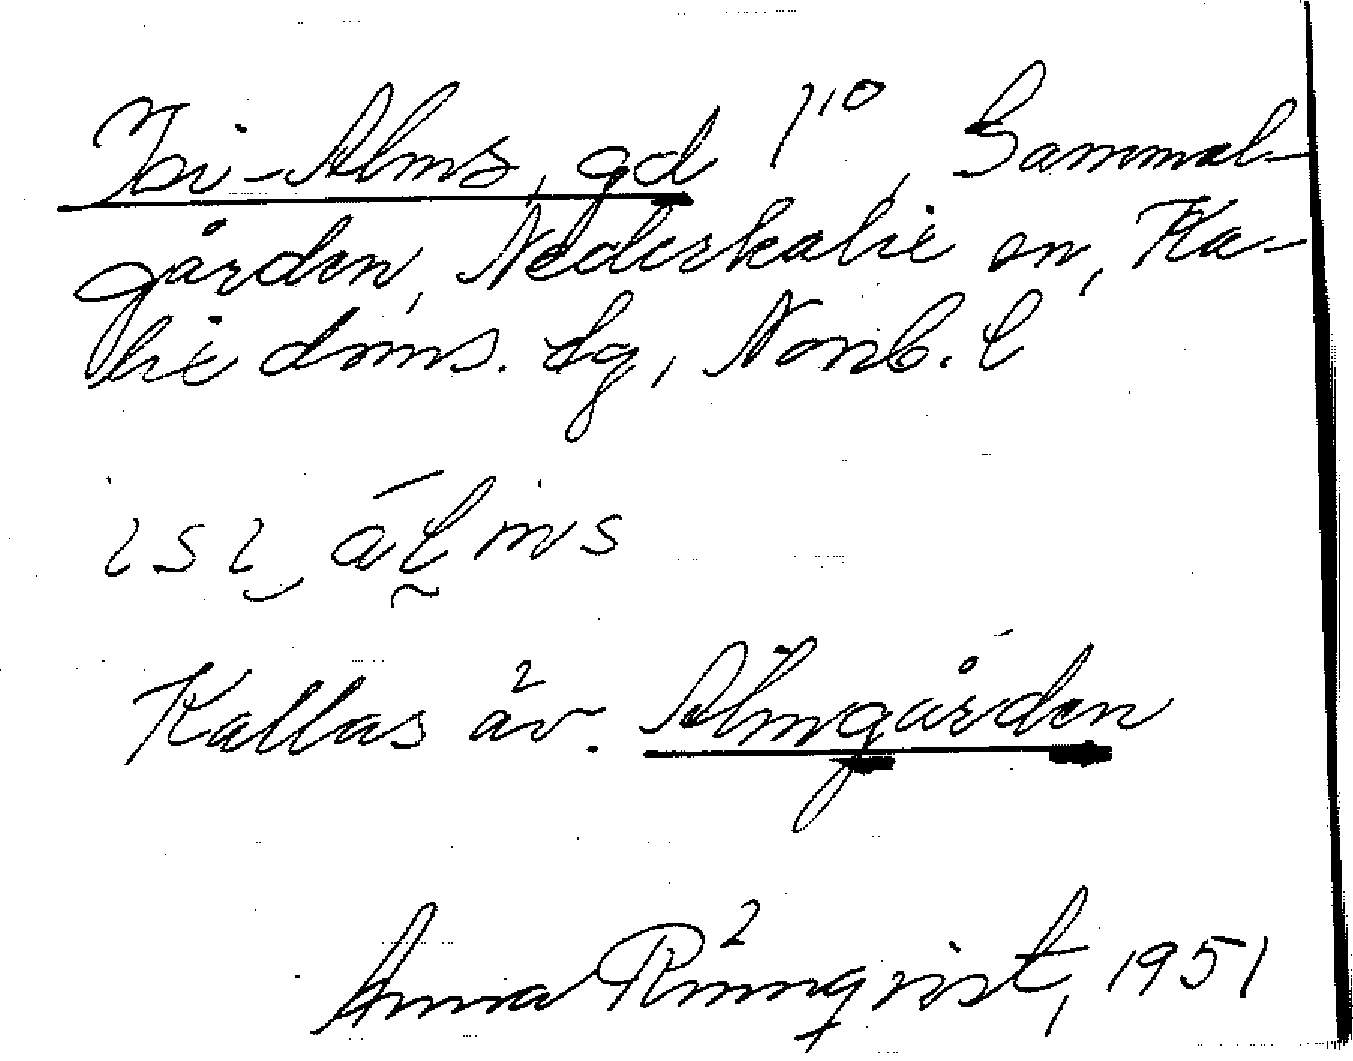 Isi-Alms, gd 1¹⁰, Gammel-
gården, Nederkalix sn, Ka-
lix doms. dg, Norrb. l
isi̮ ālms
Kallas äv. Almgården
Anna Rönnqvist, 1951